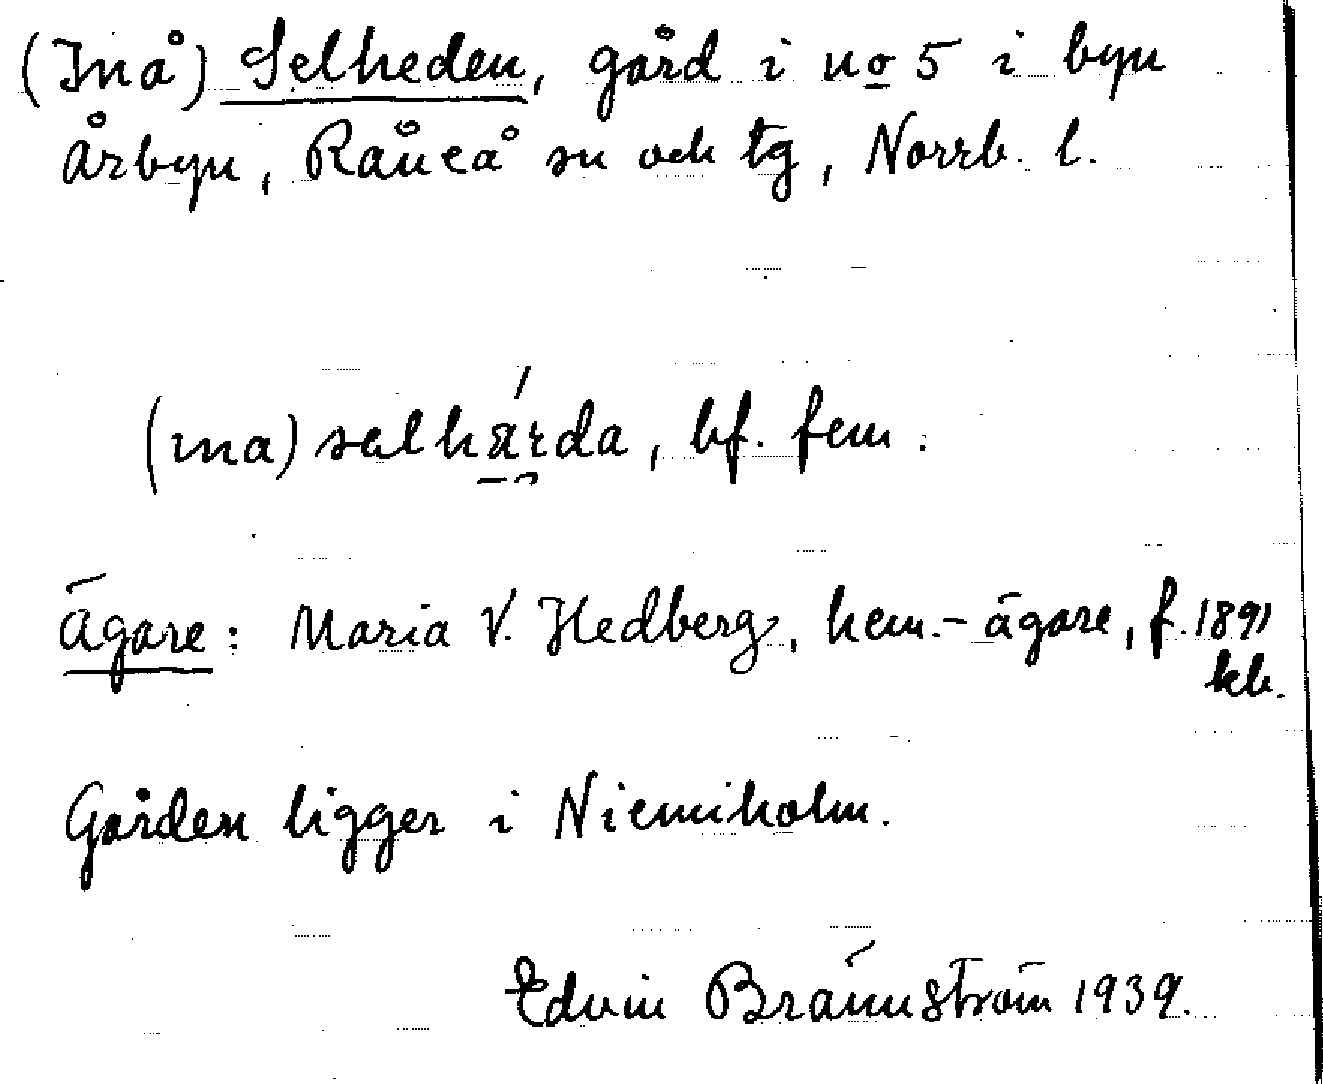 (Inå) Selheden, gård i no 5 i byn
Årbyn, Råneå sn och tg, Norrb. l.
(ɪna) salhä́rda, bf. fem.
Ägare: Maria V. Hedberg, hem.-ägare, f. 1891
kb.
Gården ligger i Niemiholm.
Edvin Brännström 1939.